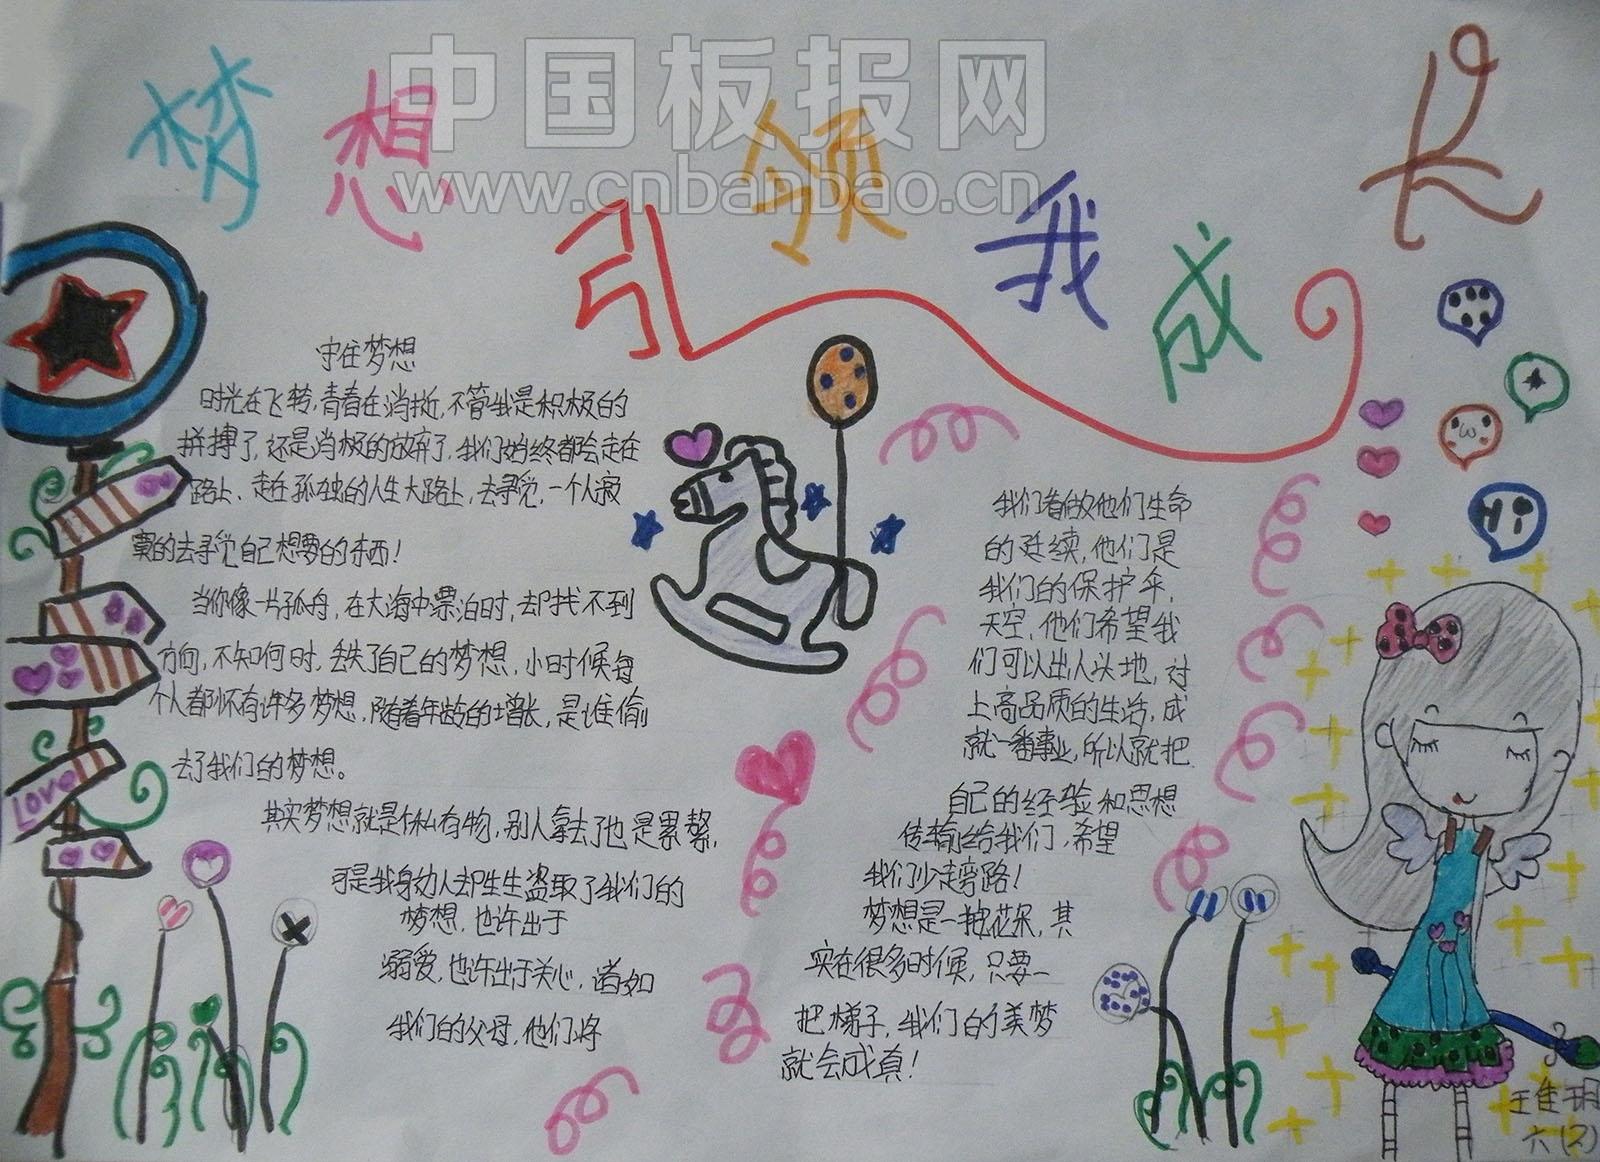 中国板报网
www.cnbanbao.cn
梦想引领我成长
守住梦想
时光在飞转,青春在消逝,不管我是积极的
拼搏了,还是消极的放弃了,我们始终都会走在
路上、走在孤独的人生大路上,去寻觅,一个人寂
寞的去寻觅自己想要的东西!
当你像一片孤舟,在大海中漂泊时,却找不到
方向,不知何时,丢失了自己的梦想,小时候每
个人都怀有许多梦想,随着年龄的增长,是谁偷
去了我们的梦想。
其实梦想就是件私有物,别人拿去了也是累赘,
可是我身边人却生生盗取了我们的
梦想,也许出于
溺爱,也许出于关心,诸如
我们的父母,他们将
我们看做他们生命
的延续,他们是
我们的保护伞,
天空,他们希望我
们可以出人头地,过
上高品质的生活,成
就一番事业,所以就把
自己的经验和思想
传输给我们,希望
我们少走弯路!
梦想是一梗花朵,其
实在很多时候,只要一
把梯子,我们的美梦
就会成真!
Love
Hi
王佳玥
六(2)